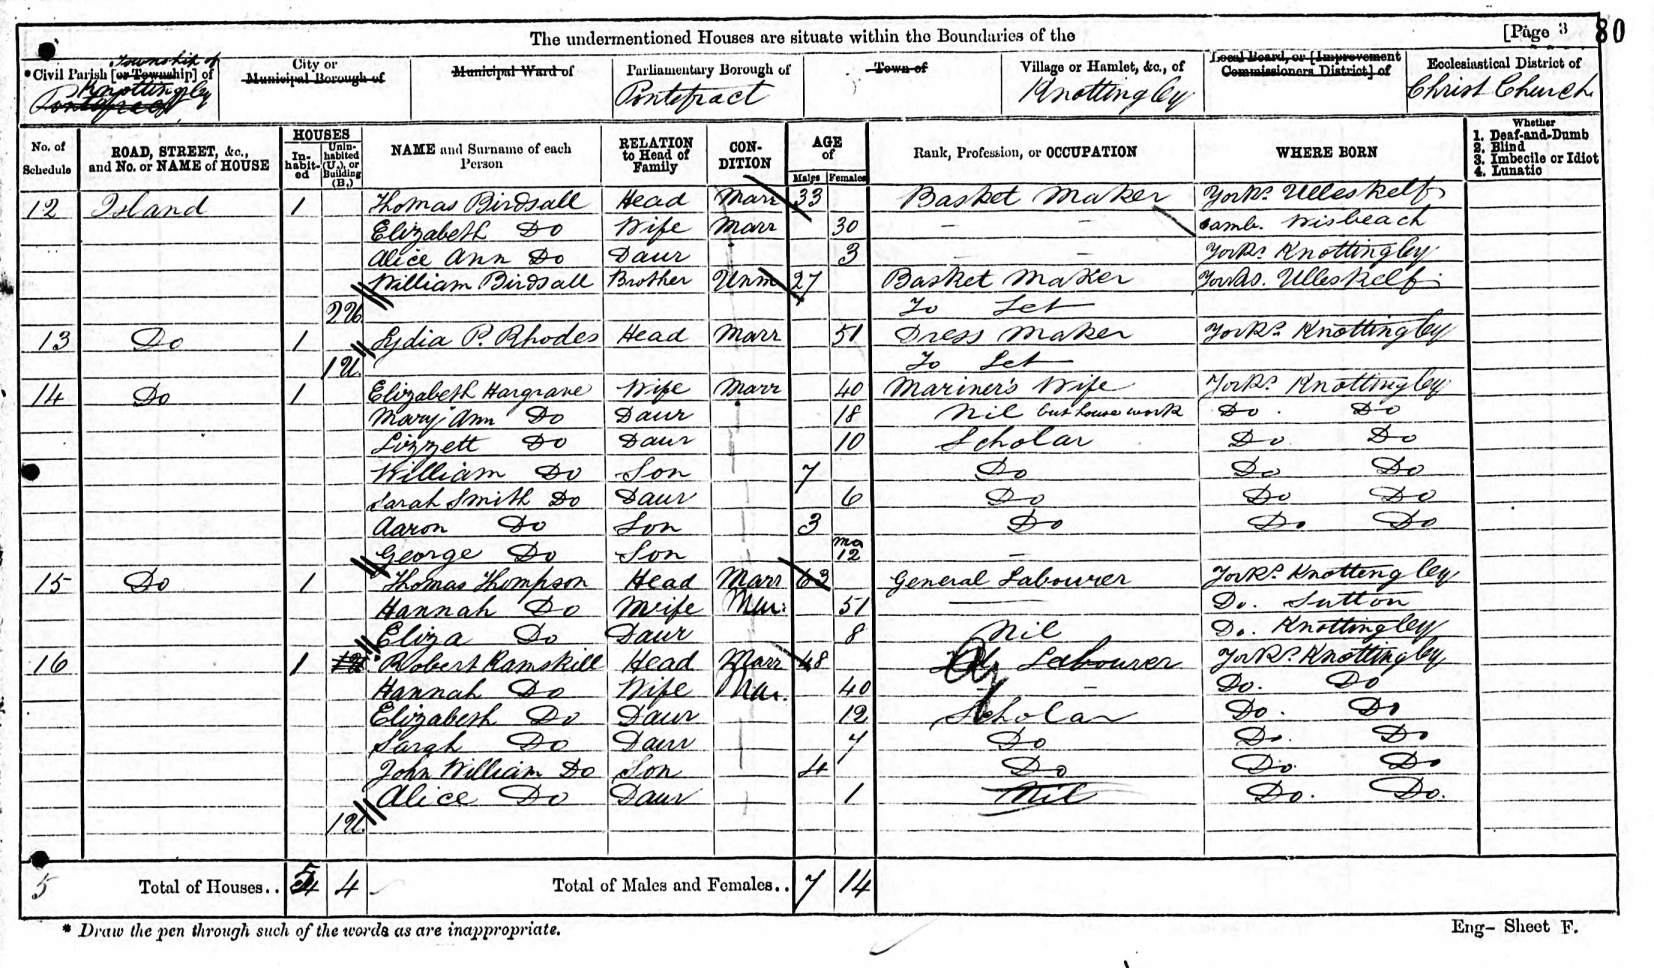 The undermentioned Houses are situate within the Boundaries of the [Page 3 80
*Civil Parish [or Township] of Township of Knottingley Pontefract
City or Municipal Borough of
Municipal Ward of
Parliamentary Borough of Pontefract
Town of
Village or Hamlet, &c., of Knottingley
Local Board, or [Improvement Commissioners District] of
Ecclesiastical District of Christ Church
No. of Schedule
ROAD, STREET, &c., and No. or NAME of HOUSE
HOUSES
In-habit-ed
Unin-habited (U.), or Building (B.)
NAME and Surname of each Person
RELATION to Head of Family
CON-DITION
AGE of
Males Females
Rank, Profession, or OCCUPATION
WHERE BORN
Whether
1. Deaf-and-Dumb
2. Blind
3. Imbecile or Idiot
4. Lunatic
12 Island 1 Thomas Birdsall Head Marr 33 Basket Maker Yorks. Ulleskelf
Elizabeth Do Wife Marr 30 - Camb. Wisbeach
Alice Ann Do Daur 3 - - Yorks. Knottingley
William Birdsall Brother Unm 27 Basket Maker Yorks. Ulleskelf
2U. To Let
13 Do 1 Lydia P. Rhodes Head Marr 51 Dress Maker Yorks. Knottingley
1U. To Let
14 Do 1 Elizabeth Hargrave Wife Marr 40 Mariner's Wife Yorks. Knottingley
Mary Ann Do Daur 18 Nil but house work Do. Do
Lizzett Do Daur 10 Scholar Do. Do
William Do Son 7 Do Do Do
Sarah Smith Do Daur 6 Do Do Do
Aaron Do Son 3 Do Do Do
George Do Son mo 12 -
15 Do 1 Thomas Thompson Head Marr 63 General Labourer Yorks. Knottingley
Hannah Do Wife Mar. 51 Do. Sutton
Eliza Do Daur 8 Nil Do. Knottingley
16 1 1U Robert Ramskill Head Marr 48 Ag Labourer Yorks. Knottingley
Hannah Do Wife Mar. 40 - - Do. Do
Elizabeth Do Daur 12 Scholar Do. Do
Sarah Do Daur 7 Do Do. Do
John William Do Son 4 Do Do. Do
Alice Do Daur 1 Nil Do. Do.
1U.
5 Total of Houses.. 5 4 Total of Males and Females.. 7 14
* Draw the pen through such of the words as are inappropriate.
Eng- Sheet F.